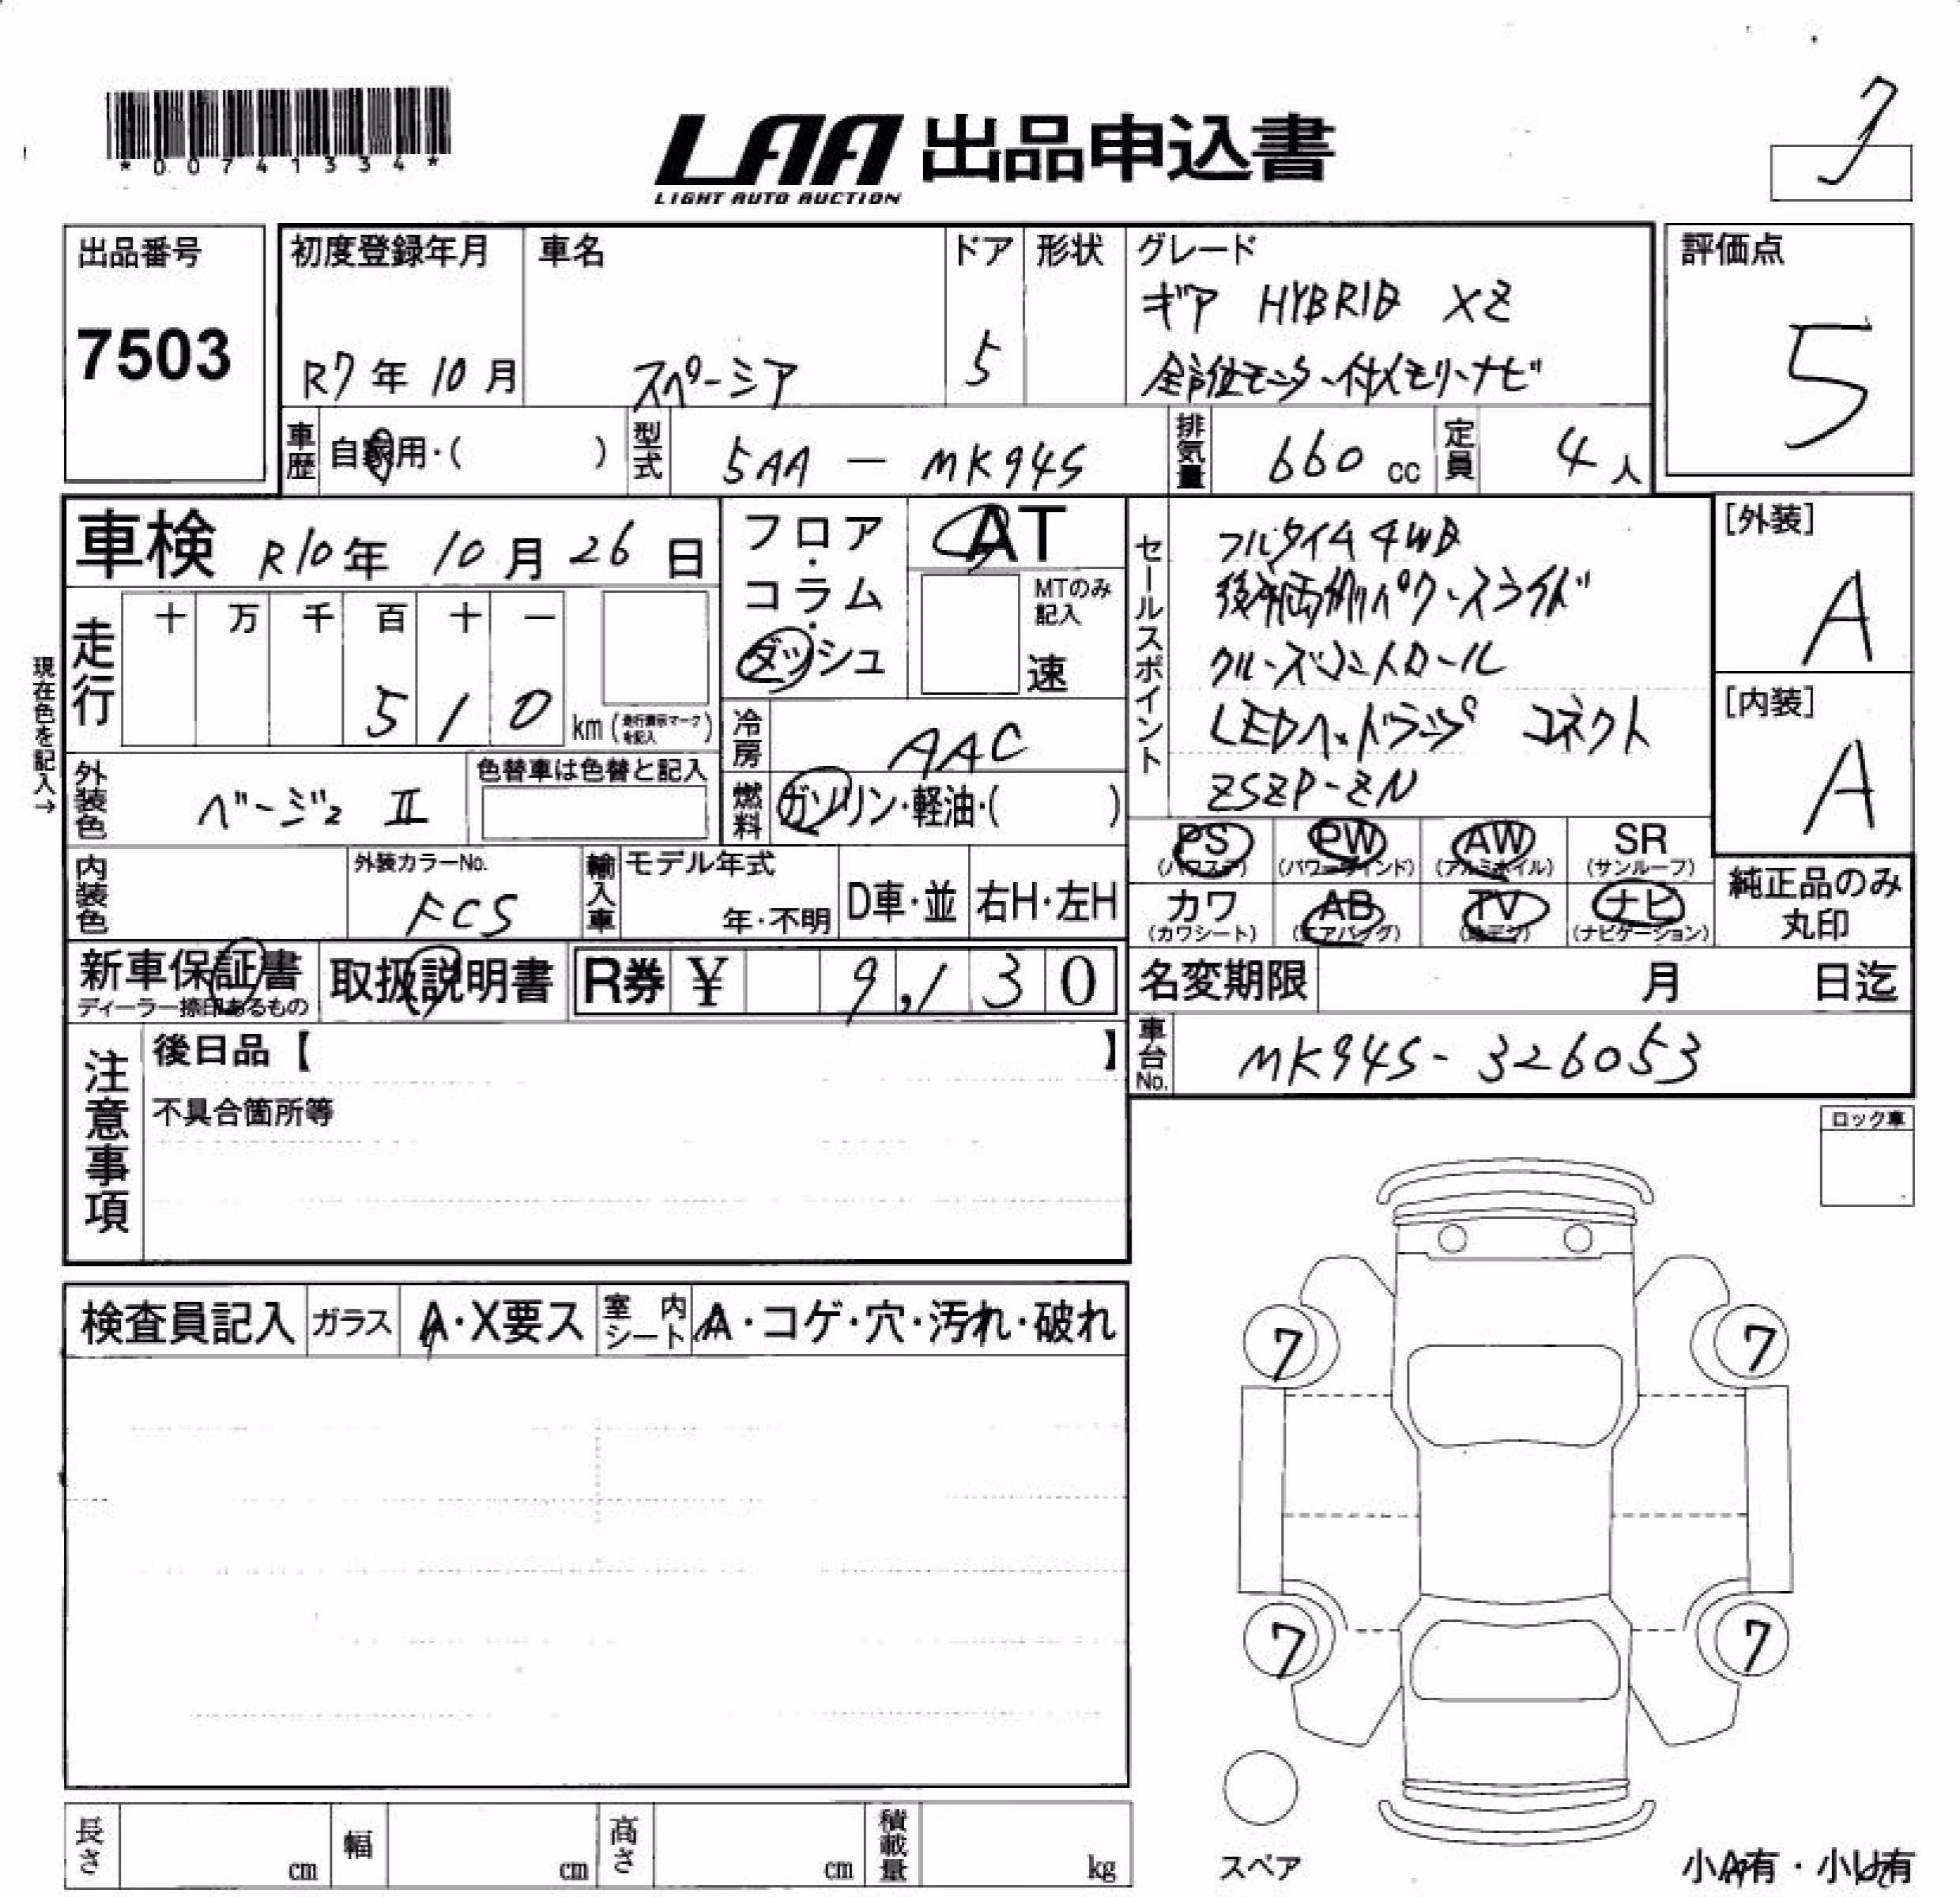 *00741334*
LAA 出品申込書
LIGHT AUTO AUCTION
出品番号
7503
初度登録年月
R7年 10月
車名
スペーシア
ドア
5
形状
グレード
ギア HYBRID XZ
全方位モニター付メモリーナビ
評価点
5
車歴
自家用・( )
型式
5AA - MK94S
排気量
660 cc
定員
4人
車検 R10年 10月 26日
走行
十 万 千 百 十 一
5 1 0
km (走行表示マークを記入)
現在色を記入→
外装色
ベージュ II
色替車は色替と記入
内装色
外装カラーNo.
FCS
フロア・コラム・ダッシュ
AT
MTのみ記入
速
冷房
AAC
燃料
ガソリン・軽油・( )
輸入車
モデル年式
年・不明
D車・並
右H・左H
セールスポイント
フルタイム4WD
後席両側パワースライド
クルーズコントロール
LEDヘッドランプ コネクト
ZSZP-ZN
[外装]
A
[内装]
A
PS (パワステ)
PW (パワーウィンド)
AW (アルミホイル)
SR (サンルーフ)
カワ (カワシート)
AB (エアバッグ)
TV (地デジ)
ナビ (ナビゲーション)
純正品のみ
丸印
新車保証書
ディーラー捺印あるもの
取扱説明書
R券 ¥ 9,130
名変期限 月 日迄
車台No.
MK94S-326053
注意事項
後日品【 】
不具合箇所等
ロック車
検査員記入
ガラス
A・X要ス
室内シート
A・コゲ・穴・汚れ・破れ
7
7
7
7
スペア
小A有・小U有
長さ cm
幅 cm
高さ cm
積載量 kg